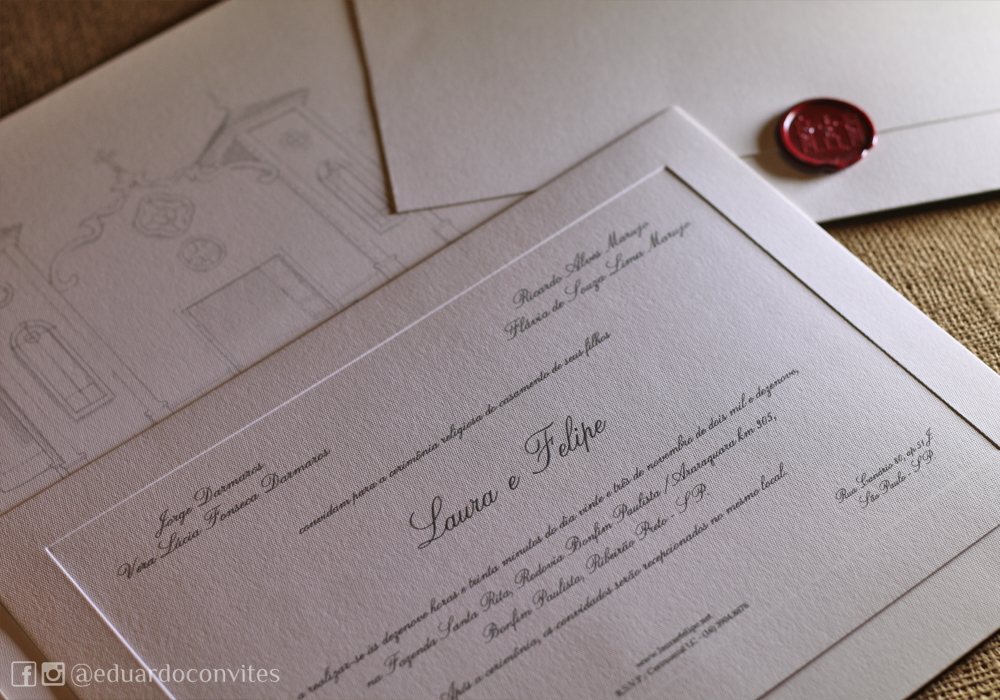 Ricardo Alves Marujo
Flávia de Souza Lima Marujo
Jorge Darmaros
Vera Lúcia Fonseca Darmaros
convidam para a cerimônia religiosa do casamento de seus filhos
Laura e Felipe
a realizar-se às dezenove horas e trinta minutos do dia vinte e três de novembro de dois mil e dezenove,
na Fazenda Santa Rita, Rodovia Bonfim Paulista / Araraquara km 305,
Bonfim Paulista, Ribeirão Preto - SP.
Após a cerimônia, os convidados serão recepcionados no mesmo local.
Rua Canário 80, ap.
São Paulo - SP
R.S.V.P.: Cerimonial
@eduardoconvites